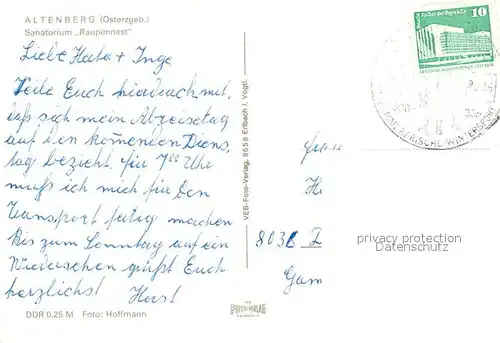 ALTENBERG (Osterzgeb.)
Sanatorium „Raupennest"
Liebe Herta + Inge
Teile Euch hierdurch mit,
daß sich mein Abreisetag
auf den kommenden Diens,
tag bezieht. für 7⁰⁰ Uhr
muß ich mich für den
Transport fertig machen
Bis zum Sonntag auf ein
Wiedersehen grüßt Euch
herzlichst
DDR 0,25 M Foto: Hoffmann
VEB-Foto-Verlag, 9658 Erlbach i. Vogtl.
10
Palast der Republik
MALERISCHE WINTERSPORT
8036
privacy protection
Datenschutz